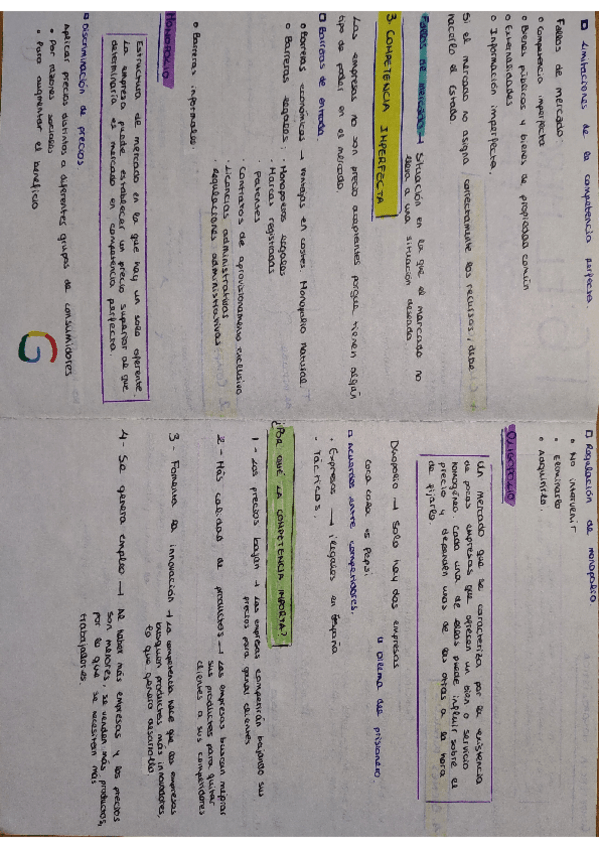 Limitaciones de la competencia perfecta
Fallos de mercado:
Competencia imperfecta
Bienes públicos y bienes de propiedad común
Externalidades
Información imperfecta.
Si el mercado no asigna correctamente los recursos, debe
hacerlo el Estado
Fallos de mercado → Situación en la que el mercado no
lleva a una situación deseada.
3. COMPETENCIA IMPERFECTA
Las empresas no son precio aceptantes porque tienen algún
tipo de poder en el mercado.
Barreras de entrada.
Barreras económicas → ventajas en costes. Monopolio natural
Barreras legales: · Monopolios legales
· Marcas registradas
· Patentes
· Contratos de aprovisionamiento exclusivo
· Licencias administrativas
· Regulaciones administrativas
Barreras informales:
MONOPOLIO
Estructura de mercado en la que hay un solo oferente.
La empresa puede establecer un precio superior al que
determinaría el mercado en competencia perfecta.
Discriminación de precios
Aplicar precios distintos a diferentes grupos de consumidores
Por razones sociales
Para aumentar el beneficio
Regulación de monopolio
No intervenir
Eliminarlo
Adquirirlo
OLIGOPOLIO
Un mercado que se caracteriza por la existencia
de pocas empresas que ofrecen un bien o servicio
homogéneo cada una de ellas puede influir sobre el
precio y dependen unas de las otras a la hora
de fijarlo.
Duopolio → Solo hay dos empresas
Coca cola vs Pepsi.
Dilema del prisionero
Acuerdos entre competidores.
· Expresos → ilegales en España
· Tácticos.
¿POR QUÉ LA COMPETENCIA IMPORTA?
1- Los precios bajan → Las empresas competirán bajando sus
precios para ganar clientes
2- Más calidad de productos → Las empresas buscan mejorar
sus productos para quitar
clientes a sus competidores
3- Fomenta la innovación → La competencia hace que las empresas
busquen productos más innovadores,
lo que genera desarrollo
4- Se genera empleo → Al haber más empresas y los precios
son menores, se venden más productos,
por lo que se necesitan más
trabajadores.